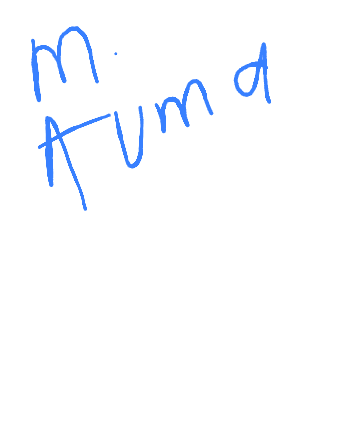 m.
Auma